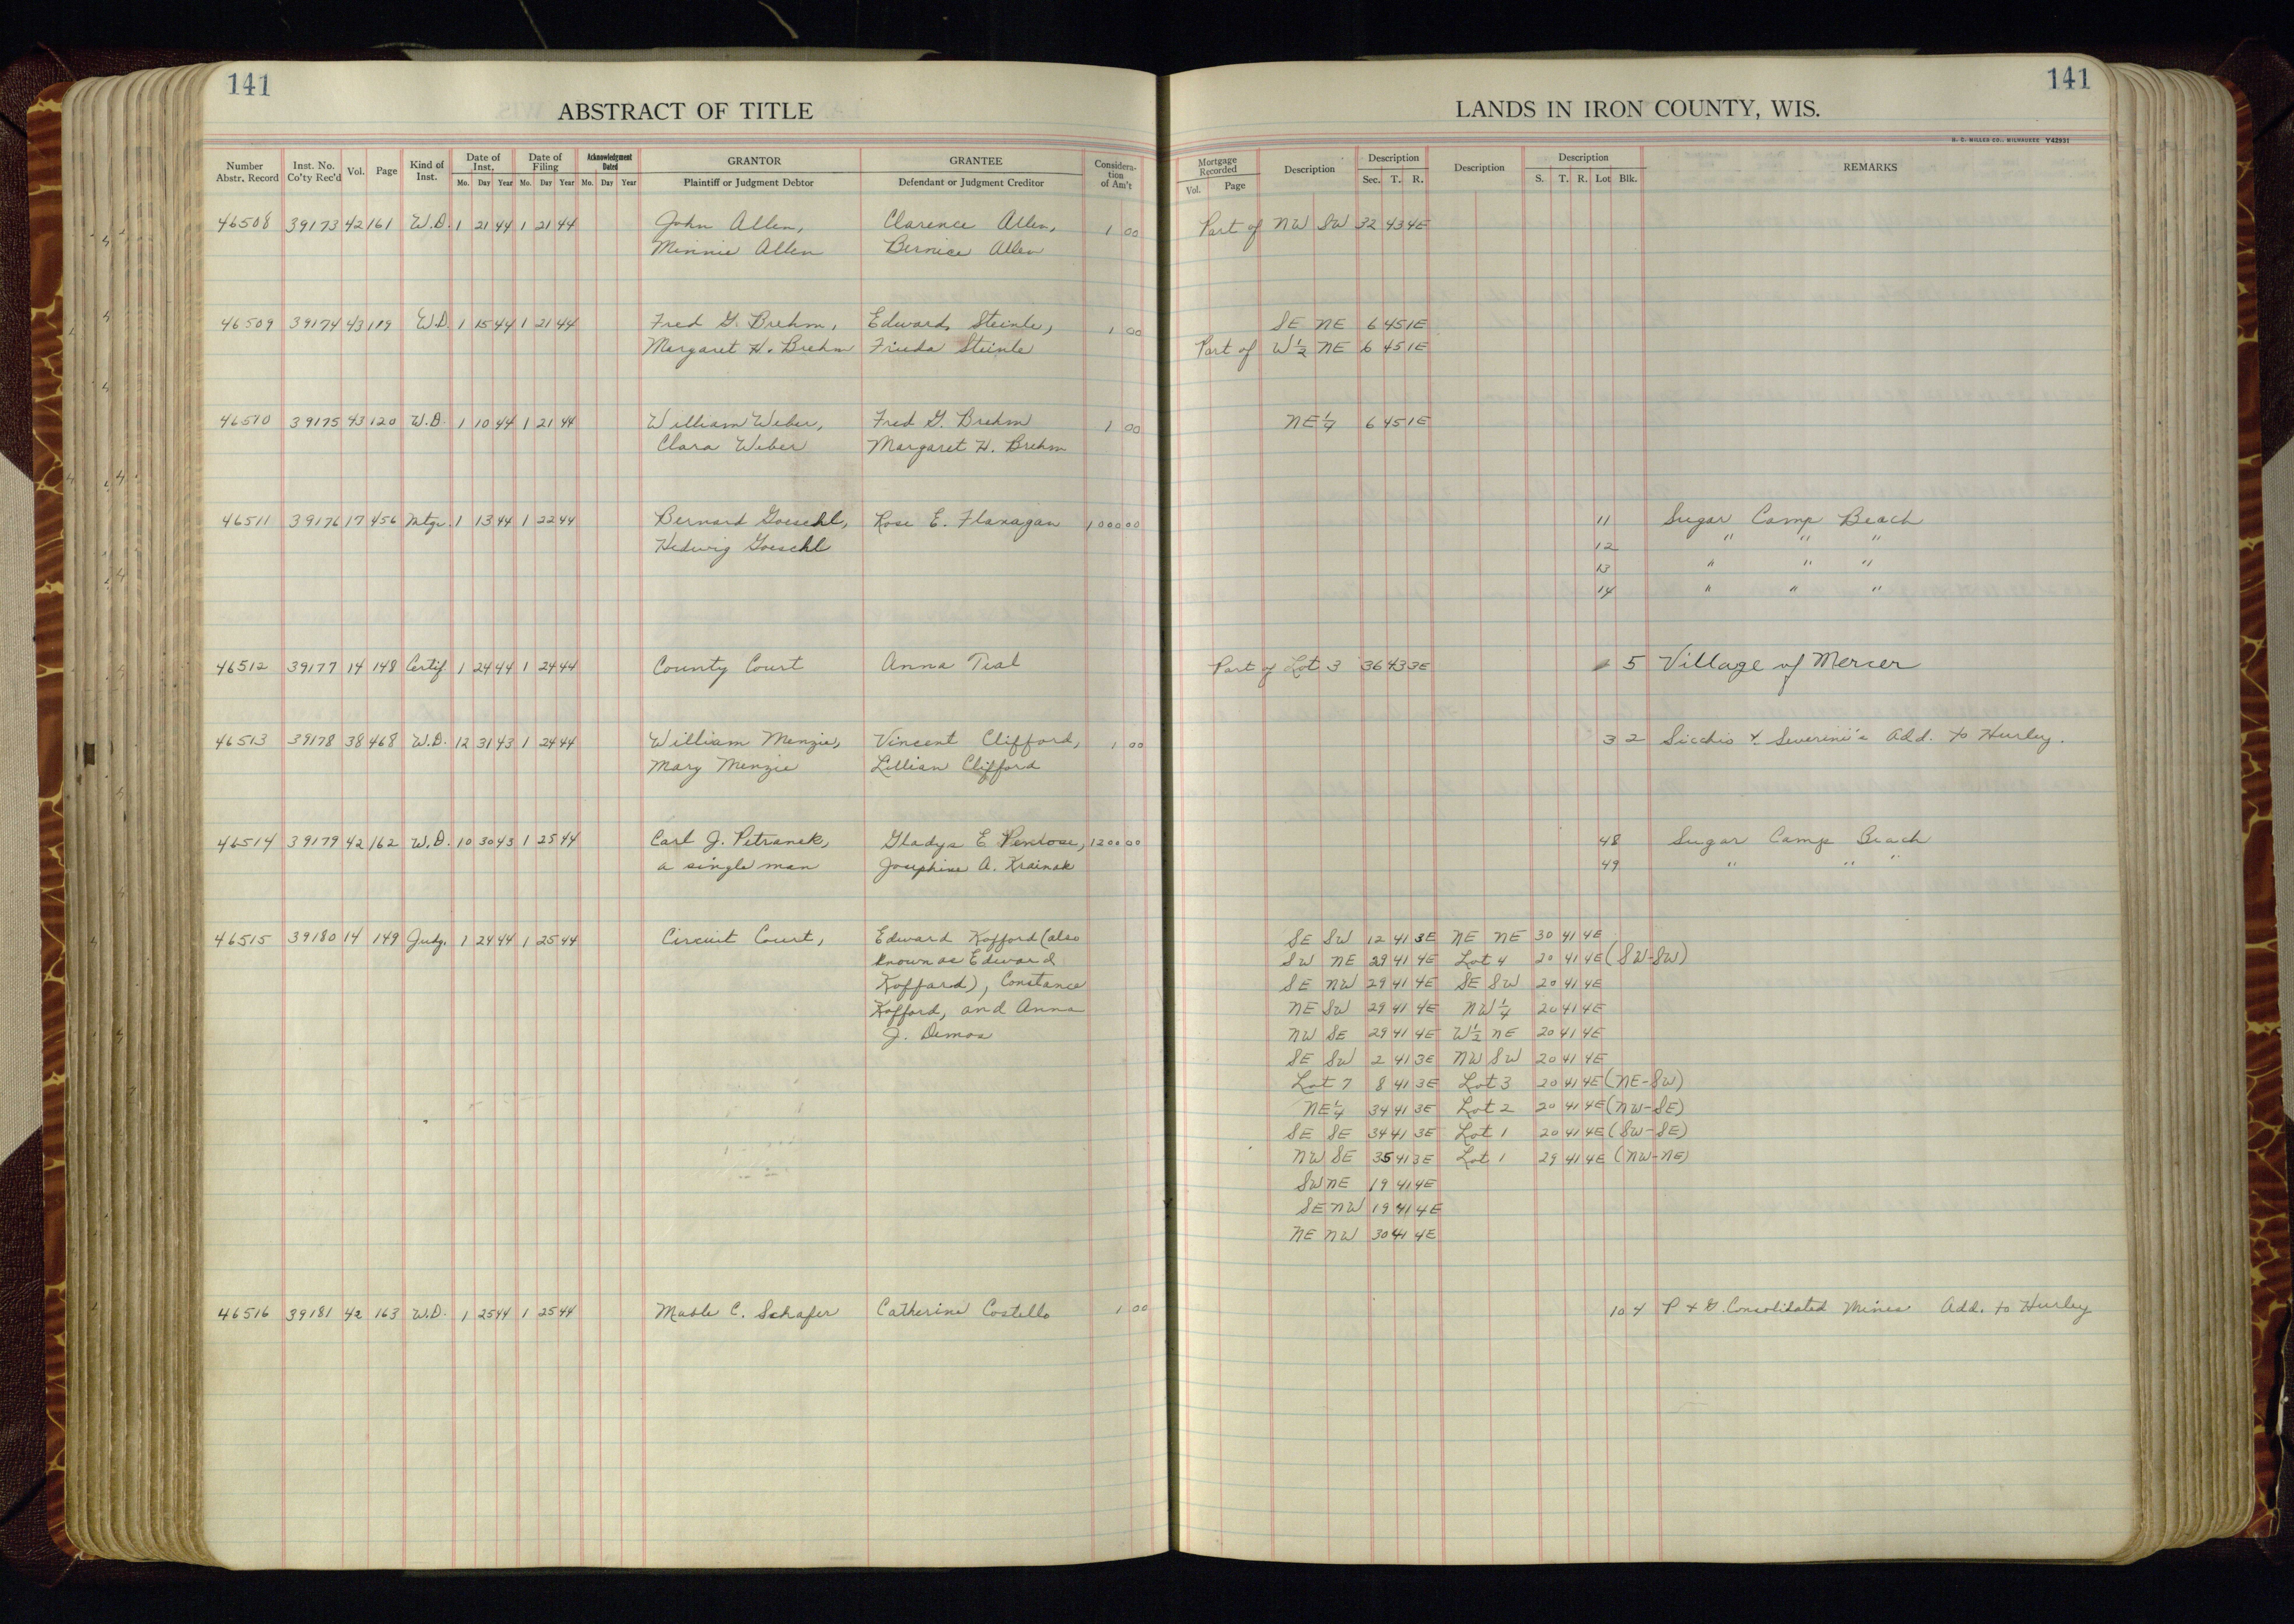 141
141
ABSTRACT OF TITLE
LANDS IN IRON COUNTY, WIS.
H. C. MILLER CO., MILWAUKEE Y42931
Number Abstr. Record | Inst. No. Co'ty Rec'd | Vol. | Page | Kind of Inst. | Date of Inst. Mo. Day Year | Date of Filing Mo. Day Year | Acknowledgment Dated Mo. Day Year | GRANTOR Plaintiff or Judgment Debtor | GRANTEE Defendant or Judgment Creditor | Considera-tion of Am't | Mortgage Recorded Vol. Page | Description | Description Sec. T. R. | Description | Description S. T. R. Lot Blk. | REMARKS
46508 39173 42 161 W.D. 1 21 44 1 21 44 John Allen, Clarence Allen, 1 00 Part of NW SW 32 43 4E
Minnie Allen Bernice Allen
46509 39174 43 119 W.D. 1 15 44 1 21 44 Fred G. Brehm, Edward Steinle, 1 00 SE NE 6 45 1E
Margaret H. Brehm Frieda Steinle Part of W½ NE 6 45 1E
46510 39175 43 120 W.D. 1 10 44 1 21 44 William Weber, Fred G. Brehm 1 00 NE¼ 6 45 1E
Clara Weber Margaret H. Brehm
46511 39176 17 456 Mtg. 1 13 44 1 22 44 Bernard Goeschl, Rose E. Flanagan 1000 00 11 Sugar Camp Beach
Hedwig Goeschl 12 " " "
13 " " "
14 " " "
46512 39177 14 148 Certif. 1 24 44 1 24 44 County Court Anna Teal Part of Lot 3 36 43 3E 5 Village of Mercer
46513 39178 38 468 W.D. 12 31 43 1 24 44 William Menzie, Vincent Clifford, 1 00 3 2 Sicchio & Severini's Add. to Hurley.
Mary Menzie Lillian Clifford
46514 39179 42 162 W.D. 10 30 43 1 25 44 Carl J. Petranek, Gladys E Penrose, 1200 00 48 Sugar Camp Beach
a single man Josephine A. Krainak 49 " " "
46515 39180 14 149 Judg. 1 24 44 1 25 44 Circuit Court, Edward Kofford (also SE SW 12 41 3E NE NE 30 41 4E
known as Edward SW NE 29 41 4E Lot 4 20 41 4E (SW-SW)
Koffard), Constance SE NW 29 41 4E SE SW 20 41 4E
Kofford, and Anna NE SW 29 41 4E NW¼ 20 41 4E
J. Demos NW SE 29 41 4E W½ NE 20 41 4E
SE SW 2 41 3E NW SW 20 41 4E
Lot 7 8 41 3E Lot 3 20 41 4E (NE-SW)
NE¼ 34 41 3E Lot 2 20 41 4E (NW-SE)
SE SE 34 41 3E Lot 1 20 41 4E (SW-SE)
NW SE 35 41 3E Lot 1 29 41 4E (NW-NE)
SW NE 19 41 4E
SE NW 19 41 4E
NE NW 30 41 4E
46516 39181 42 163 W.D. 1 25 44 1 25 44 Mable C. Schafer Catherine Costello 1 00 10 4 P & G. Consolidated Mines Add. to Hurley